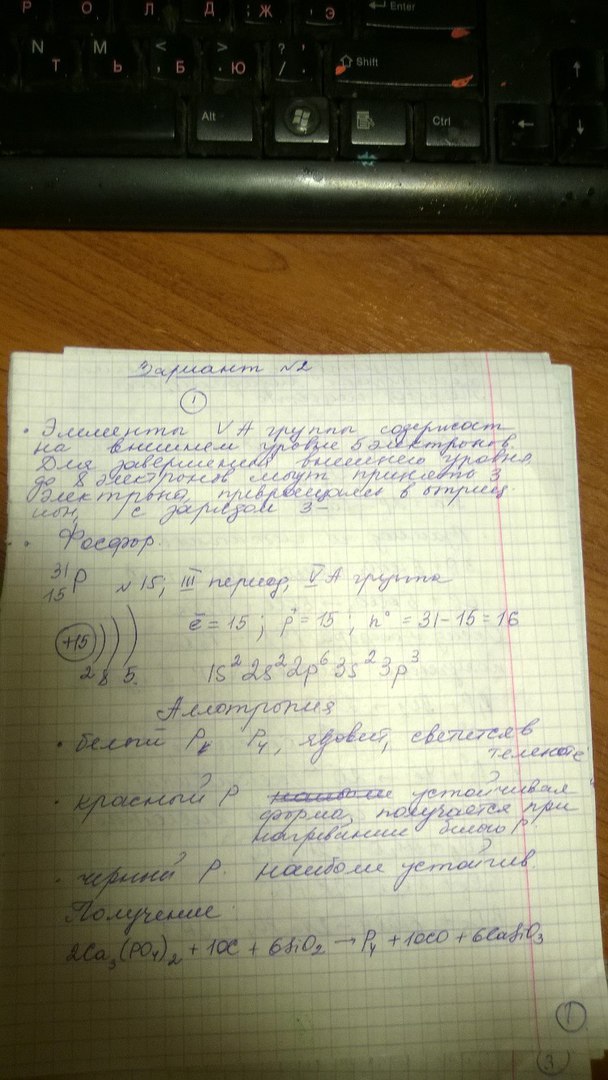 Р О Л Д Ж Э Enter
N Т M Ь < , Б > . Ю ? / . Shift ↑
Alt Ctrl ← ↓
Вариант №2
1
• Элементы V А группы содержат
на внешнем уровне 5 электронов
Для завершения внешнего уровня
до 8 электронов могут принять 3
электрона, превращаясь в отриц.
ион, с зарядом 3-
• Фосфор.
³¹₁₅P №15; III период, V А группа
+15 ) ) ) ē = 15 ; p⁺ = 15 ; n° = 31 - 15 = 16
2 8 5. 1S² 2s² 2p⁶ 3s² 3p³
Аллотропия
• белый P₄, ядовит, светится в
темноте
• красный P устойчивая
форма, получается при
нагревании белого P
• чёрный P. наиболее устойчив.
Получение
2Ca₃(PO₄)₂ + 10C + 6SiO₂ → P₄ + 10CO + 6CaSiO₃
1
3